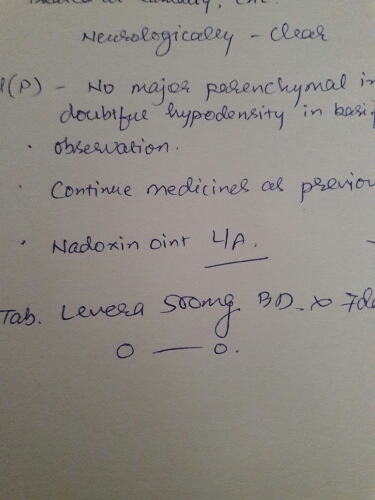 Neurologically - clear
(P) - No major parenchymal in
doubtful hypodensity in basi
· observation.
· Continue medicines as previou
· Nadoxin oint L/A.
Tab. Levera 500mg BD x 7da
0 — 0.